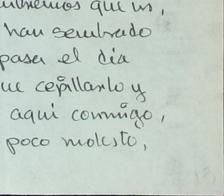 que us,
han sembrado
pasa el día
ue cepillarlo y
aquí conmigo,
poco molesto,